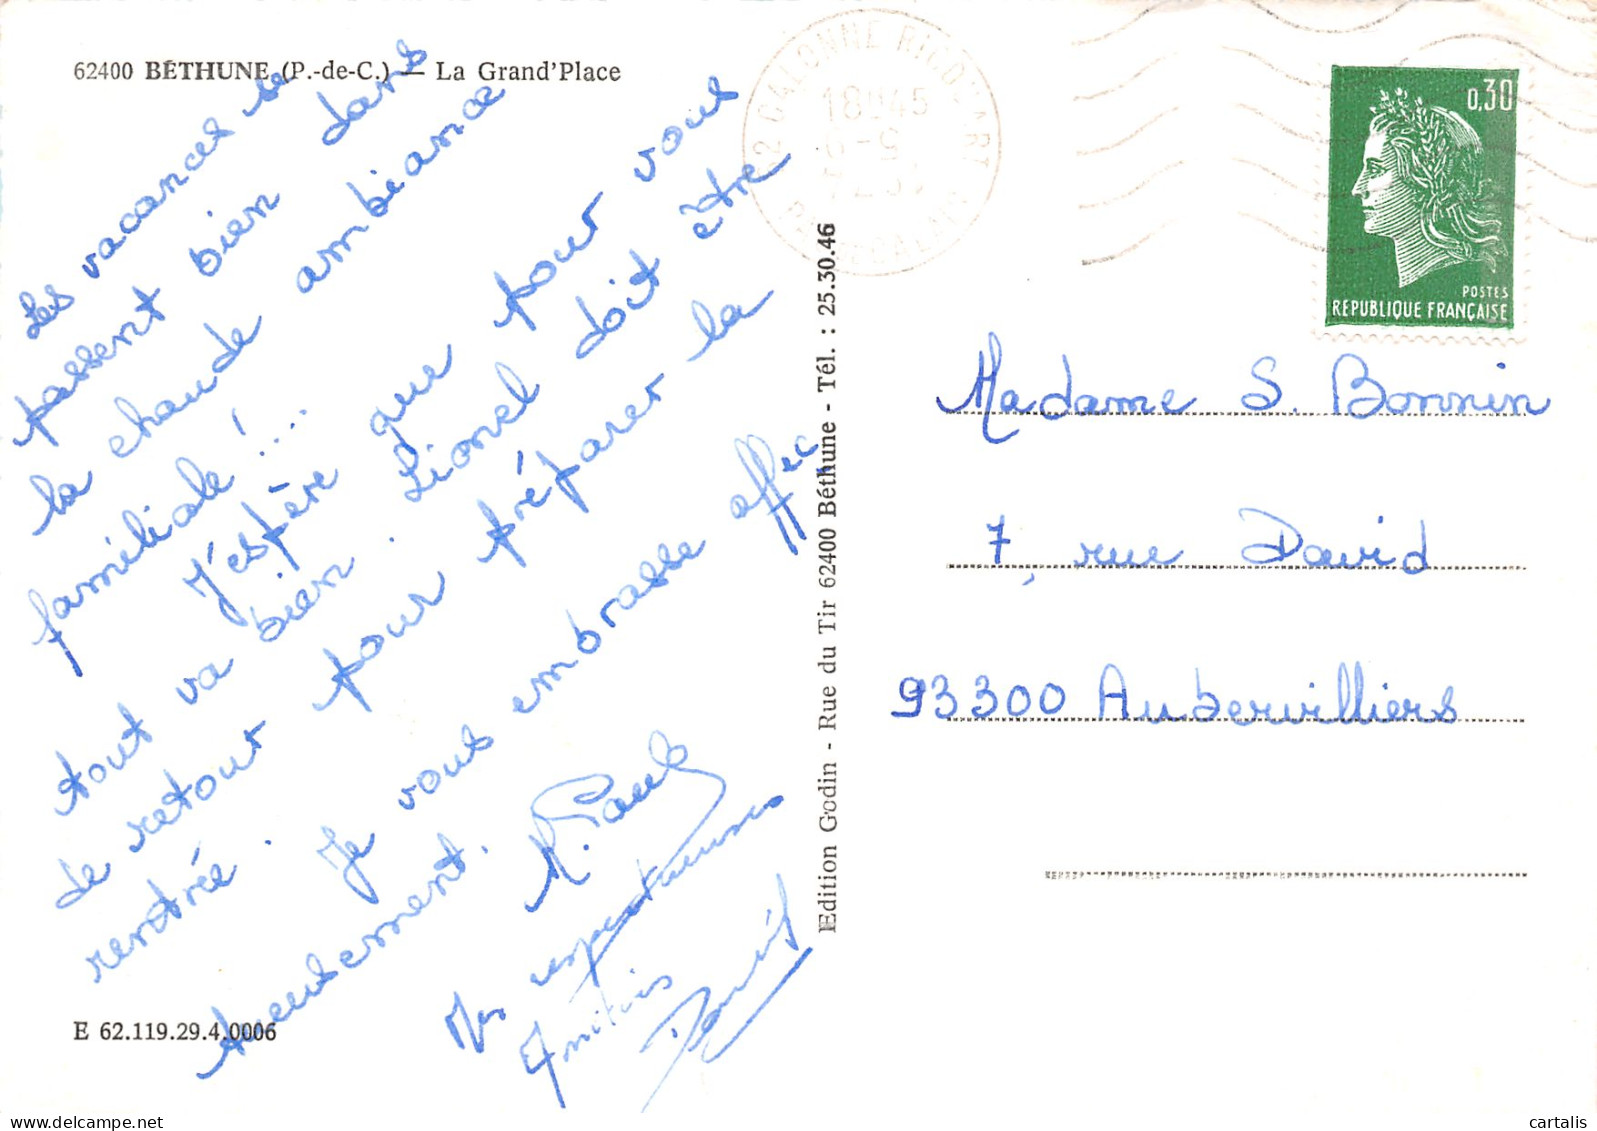 62400 BÉTHUNE (P.-de-C.) — La Grand'Place
Les vacances se
passent bien dans
la chaude ambiance
familiale !...
J'espère que pour vous
tout va bien. Lionel doit être
de retour pour préparer la
rentrée. Je vous embrasse affec
tueusement. M. Paule
Mes respectueuses
Amitiés
Daniel
E 62.119.29.4.0006
Edition Godin - Rue du Tir 62400 Béthune - Tél. : 25.30.46
62 CALONNE RICOUART
18H45
PAS DE CALAIS
0,30
POSTES
RÉPUBLIQUE FRANÇAISE
Madame S. Bonnin
7, rue David
93300 Aubervilliers
cartalis